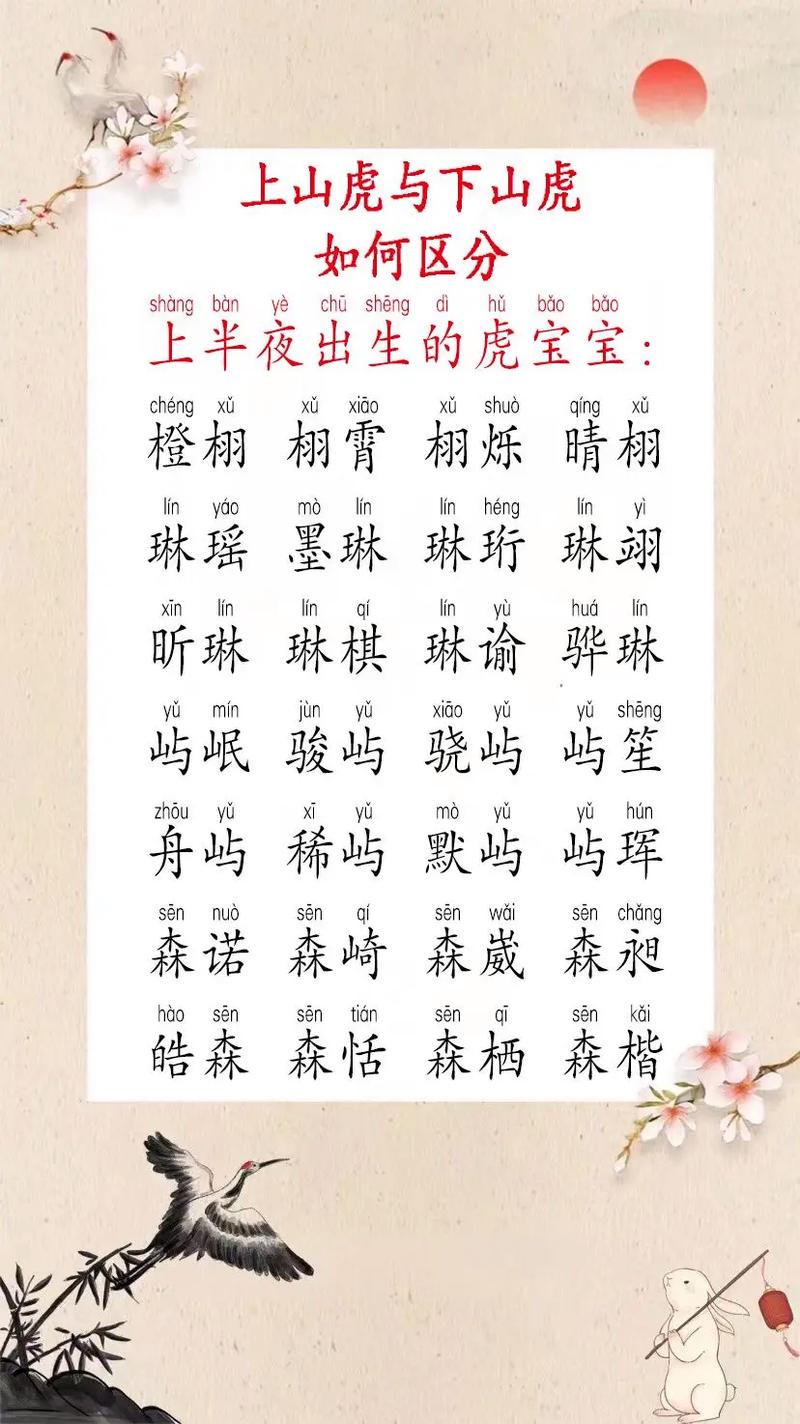 上山虎与下山虎
如何区分
shàng bàn yè chū shēng dì hǔ bǎo bǎo
上半夜出生的虎宝宝：
chéng xǔ xǔ xiāo xǔ shuò qíng xǔ
橙栩 栩霄 栩烁 晴栩
lín yáo mò lín lín héng lín yì
琳瑶 墨琳 琳珩 琳翊
xīn lín lín qí lín yù huá lín
昕琳 琳棋 琳谕 骅琳
yǔ mín jùn yǔ xiāo yǔ yǔ shēng
屿岷 骏屿 骁屿 屿笙
zhōu yǔ xī yǔ mò yǔ yǔ hún
舟屿 稀屿 默屿 屿珲
sēn nuò sēn qí sēn wǎi sēn chǎng
森诺 森崎 森崴 森昶
hào sēn sēn tián sēn qī sēn kǎi
皓森 森恬 森栖 森楷